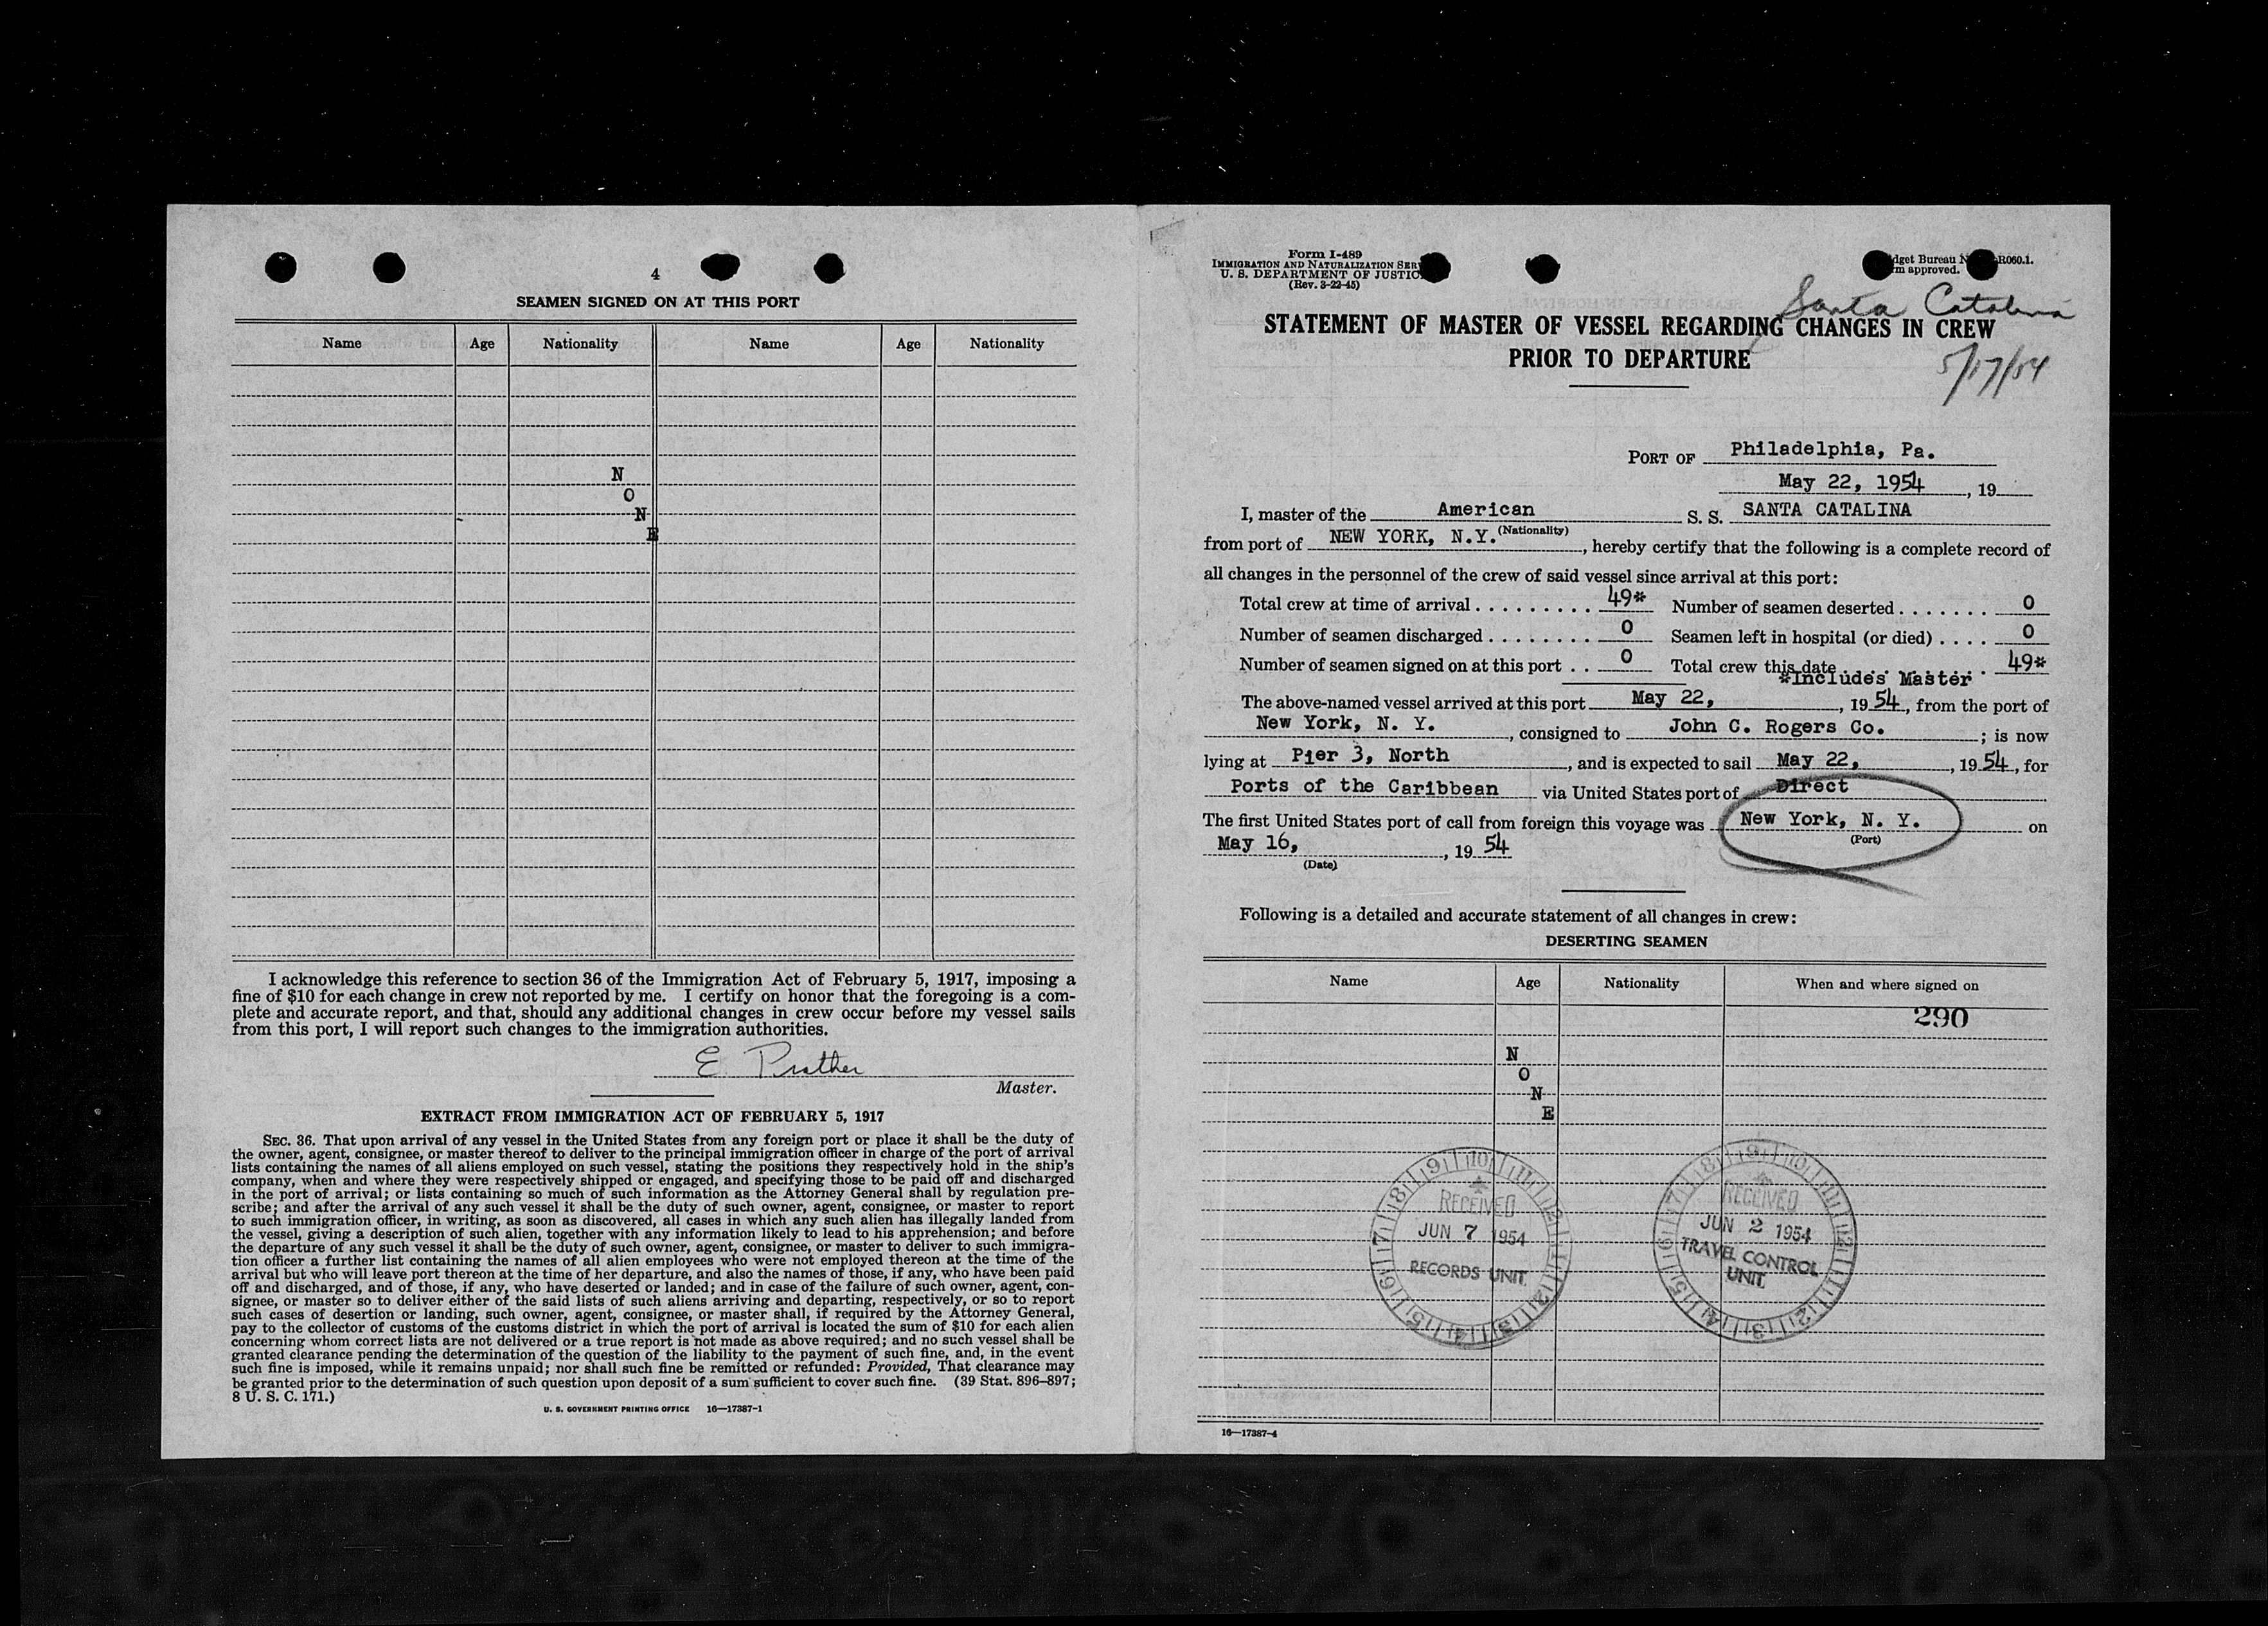 4
SEAMEN SIGNED ON AT THIS PORT
Name Age Nationality Name Age Nationality
N
O
N
E
I acknowledge this reference to section 36 of the Immigration Act of February 5, 1917, imposing a
fine of $10 for each change in crew not reported by me. I certify on honor that the foregoing is a com-
plete and accurate report, and that, should any additional changes in crew occur before my vessel sails
from this port, I will report such changes to the immigration authorities.
E Prather
Master.
EXTRACT FROM IMMIGRATION ACT OF FEBRUARY 5, 1917
SEC. 36. That upon arrival of any vessel in the United States from any foreign port or place it shall be the duty of
the owner, agent, consignee, or master thereof to deliver to the principal immigration officer in charge of the port of arrival
lists containing the names of all aliens employed on such vessel, stating the positions they respectively hold in the ship's
company, when and where they were respectively shipped or engaged, and specifying those to be paid off and discharged
in the port of arrival; or lists containing so much of such information as the Attorney General shall by regulation pre-
scribe; and after the arrival of any such vessel it shall be the duty of such owner, agent, consignee, or master to report
to such immigration officer, in writing, as soon as discovered, all cases in which any such alien has illegally landed from
the vessel, giving a description of such alien, together with any information likely to lead to his apprehension; and before
the departure of any such vessel it shall be the duty of such owner, agent, consignee, or master to deliver to such immigra-
tion officer a further list containing the names of all alien employees who were not employed thereon at the time of the
arrival but who will leave port thereon at the time of her departure, and also the names of those, if any, who have been paid
off and discharged, and of those, if any, who have deserted or landed; and in case of the failure of such owner, agent, con
signee, or master so to deliver either of the said lists of such aliens arriving and departing, respectively, or so to report
such cases of desertion or landing, such owner, agent, consignee, or master shall, if required by the Attorney General,
pay to the collector of customs of the customs district in which the port of arrival is located the sum of $10 for each alien
concerning whom correct lists are not delivered or a true report is not made as above required; and no such vessel shall be
granted clearance pending the determination of the question of the liability to the payment of such fine, and, in the event
such fine is imposed, while it remains unpaid; nor shall such fine be remitted or refunded: Provided, That clearance may
be granted prior to the determination of such question upon deposit of a sum sufficient to cover such fine. (39 Stat. 896–897;
8 U. S. C. 171.)
U. S. GOVERNMENT PRINTING OFFICE 16—17387-1
Form I-489
IMMIGRATION AND NATURALIZATION SER
U. S. DEPARTMENT OF JUSTIC
(Rev. 3-22-45)
dget Bureau N R060.1.
m approved.
Santa Catalina
STATEMENT OF MASTER OF VESSEL REGARDING CHANGES IN CREW
PRIOR TO DEPARTURE
5/17/54
PORT OF Philadelphia, Pa.
May 22, 1954, 19
I, master of the American S. S. SANTA CATALINA
(Nationality)
from port of NEW YORK, N.Y., hereby certify that the following is a complete record of
all changes in the personnel of the crew of said vessel since arrival at this port:
Total crew at time of arrival . . . . . . . . . . 49* Number of seamen deserted . . . . . . . 0
Number of seamen discharged . . . . . . . . 0 Seamen left in hospital (or died) . . . . 0
Number of seamen signed on at this port . . 0 Total crew this date . . . . . . . . 49*
*Includes Master
The above-named vessel arrived at this port May 22, , 1954, from the port of
New York, N. Y. , consigned to John C. Rogers Co. ; is now
lying at Pier 3, North , and is expected to sail May 22, , 1954, for
Ports of the Caribbean via United States port of Direct
The first United States port of call from foreign this voyage was New York, N. Y. on
(Port)
May 16, , 19 54
(Date)
Following is a detailed and accurate statement of all changes in crew:
DESERTING SEAMEN
Name Age Nationality When and where signed on
290
N
O
N
E
RECEIVED
JUN 7 1954
RECORDS UNIT
RECEIVED
JUN 2 1954
TRAVEL CONTROL
UNIT
16—17387-4